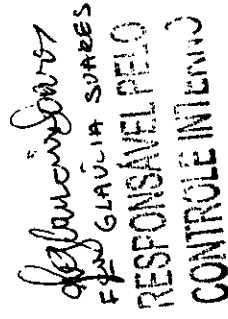 GLAUCIA SUARES
RESPONSÁVEL PELO
CONTROLE INTERNO